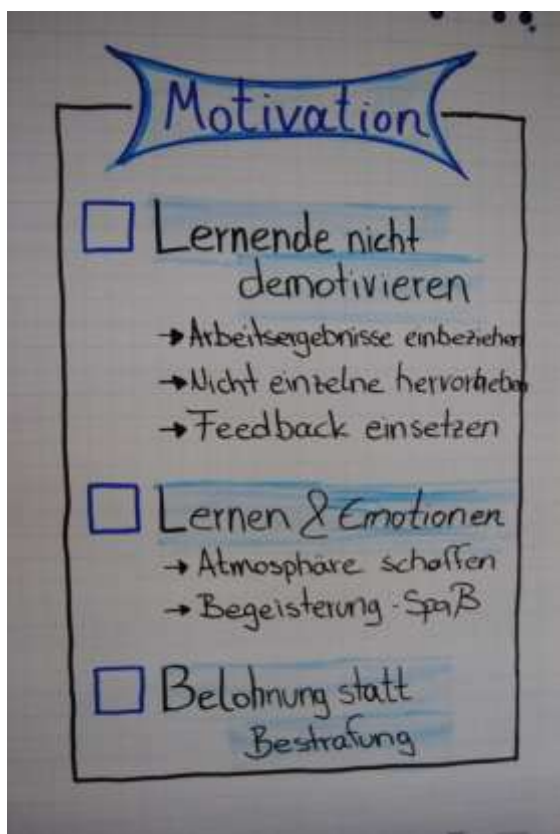 Motivation
Lernende nicht
demotivieren
→ Arbeitsergebnisse einbeziehen
→ Nicht einzelne hervorheben
→ Feedback einsetzen
Lernen & Emotionen
→ Atmosphäre schaffen
→ Begeisterung - Spaß
Belohnung statt
Bestrafung